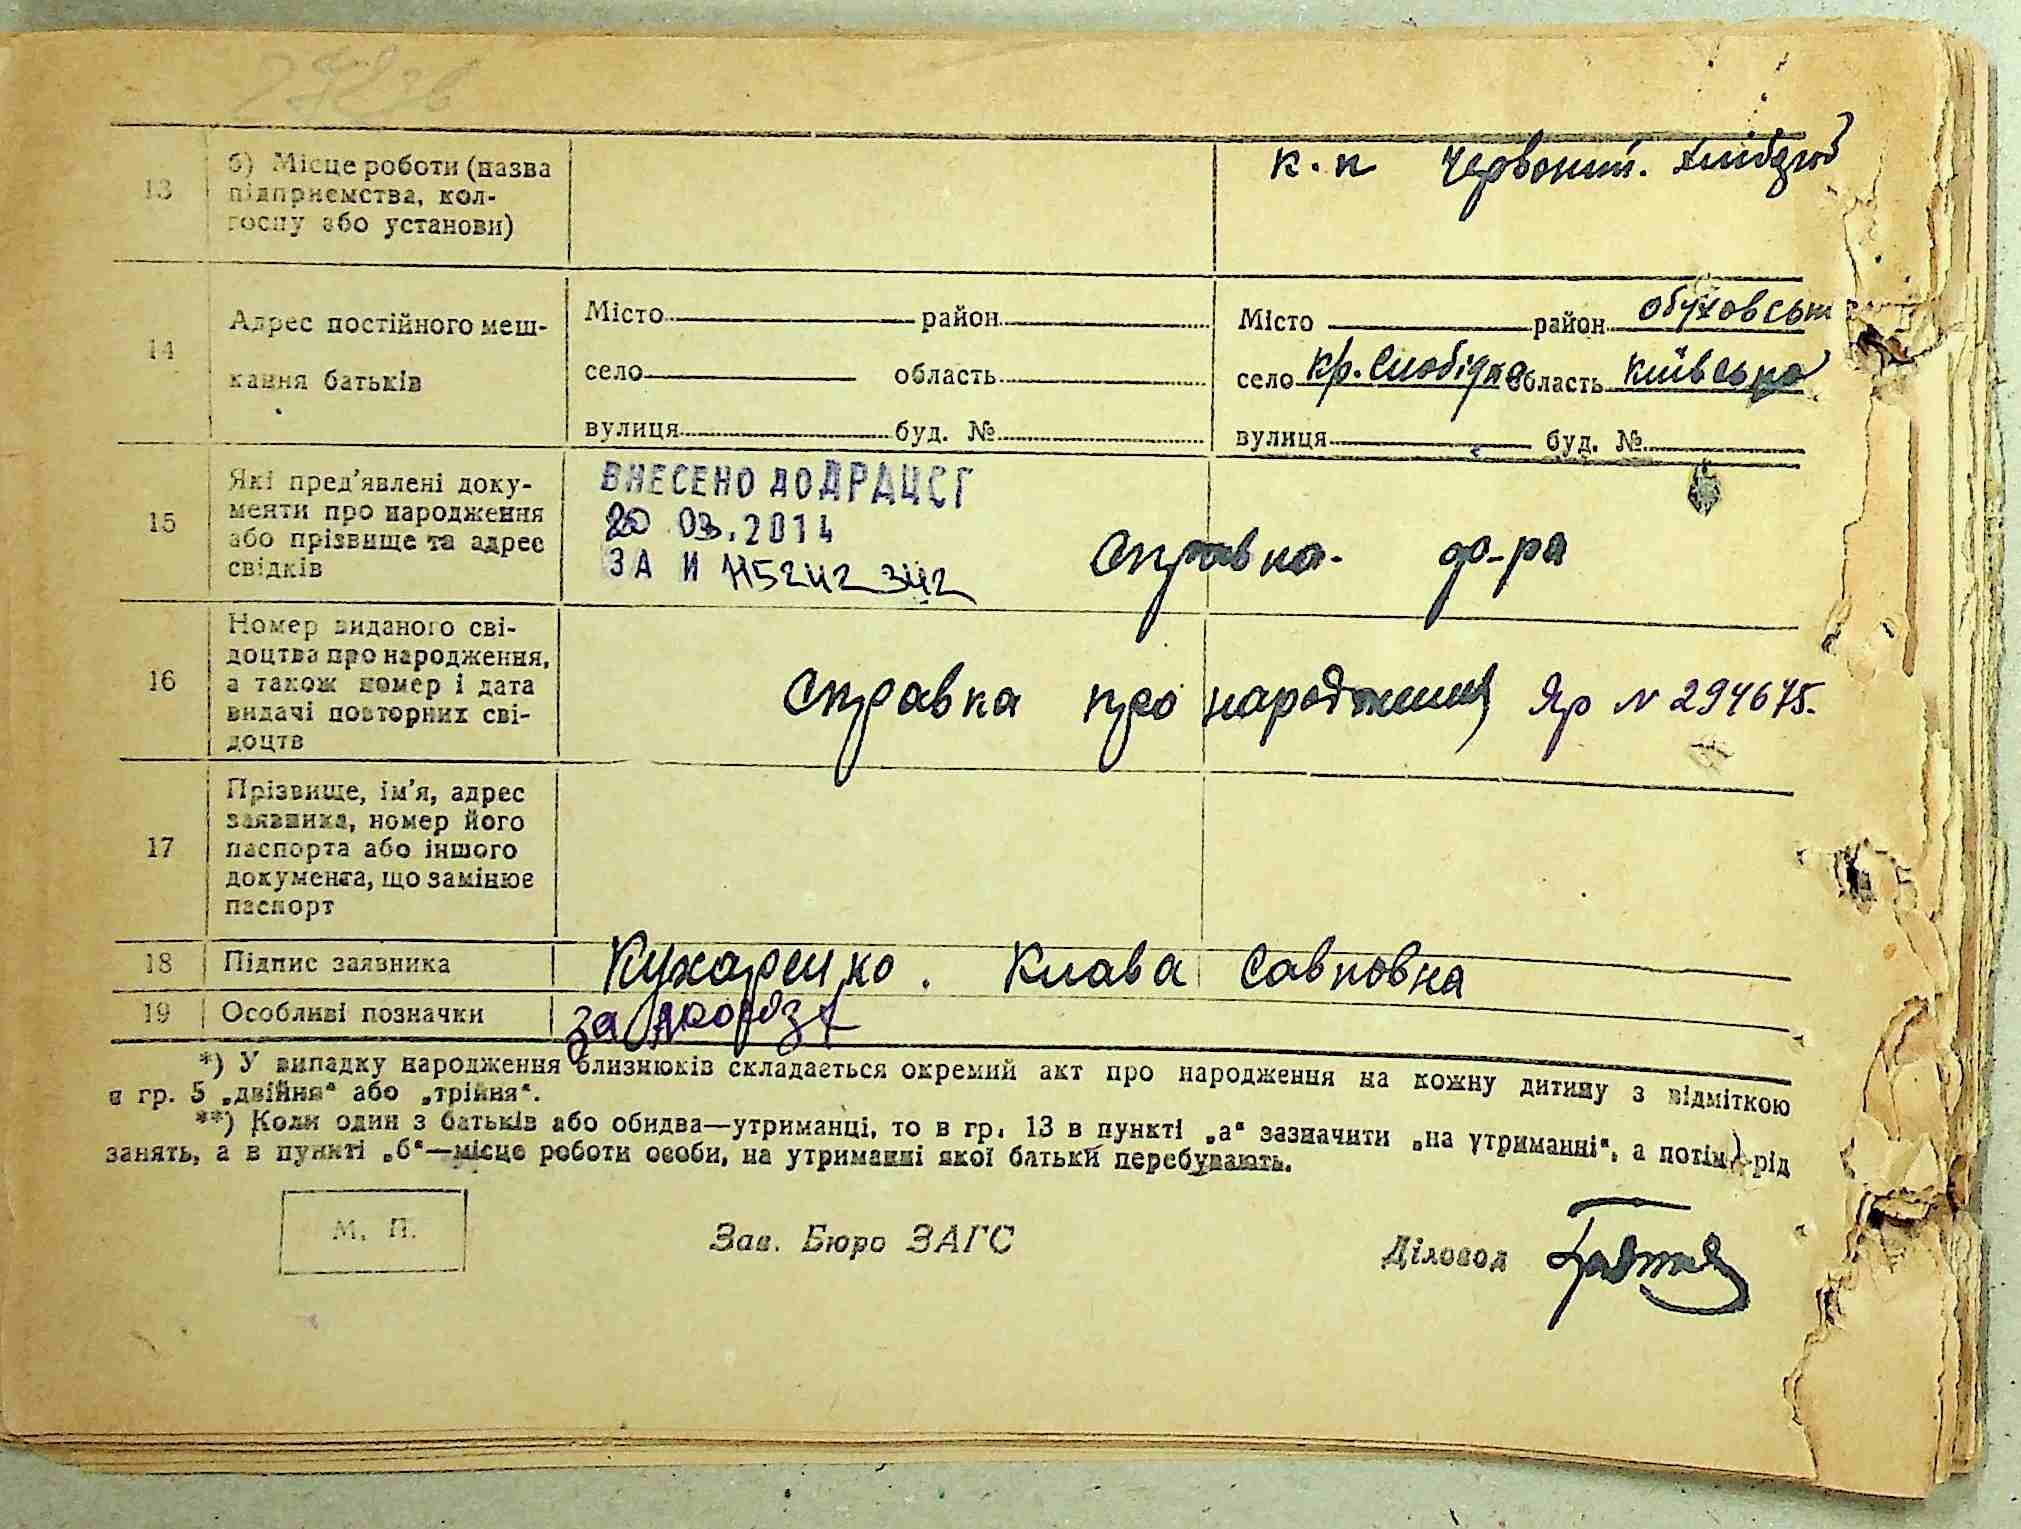 13
б) Місце роботи (назва
підприємства, кол-
госпу або установи)
к. п Червоний. хлібороб
14
Адрес постійного меш-
кання батьків
Місто район
село область
вулиця буд. №
Місто район обуховськ
село кр. Слобідка область Київська
вулиця буд. №
15
Які пред'явлені доку-
менти про народження
або прізвище та адрес
свідків
ВНЕСЕНО ДО ДРАЦСГ
20 03.2014
ЗА И
справка. до-ра
16
Номер виданого сві-
доцтва про народження,
а також номер і дата
видачі повторних сві-
доцтв
справка про народження Яр N 294675.
17
Прізвище, ім'я, адрес
заявника, номер його
паспорта або іншого
документа, що замінює
паспорт
18
Підпис заявника
Кухаренко. Клава Савковна
19
Особливі позначки
за
*) У випадку народження близнюків складається окремий акт про народження на кожну дитину з відміткою
в гр. 5 „двійня“ або „трійня“.
**) Коли один з батьків або обидва—утриманці, то в гр. 13 в пункті „а“ зазначити „на утриманні“, а потім рід
занять, а в пункті „б“—місце роботи особи, на утриманні якої батьки перебувають.
М. П.
Зав. Бюро ЗАГС
Діловод